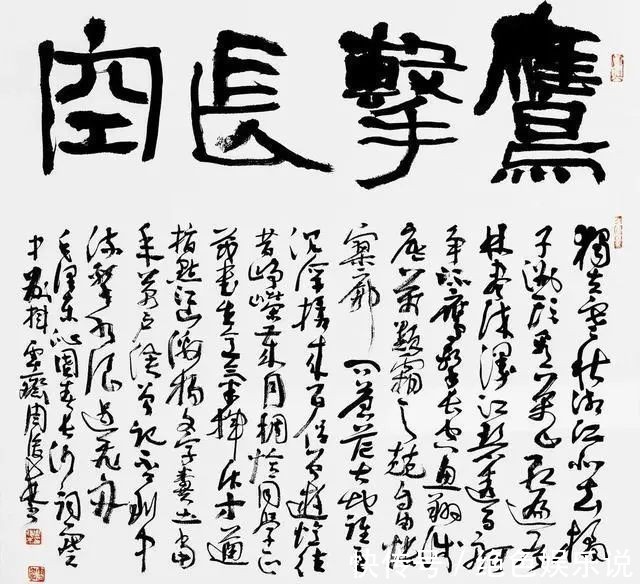 鷹擊長空
獨立寒秋湘江北去橘
子洲頭看萬山紅遍層
林盡染漫江碧透百舸
爭流鷹擊長空魚翔淺
底萬類霜天競自由悵
寥廓問蒼茫大地誰
沉浮攜來百侶曾遊憶往
昔崢嶸歲月稠恰同學正
茂書生意氣揮斥方遒
指點江山激揚文字糞土當
年萬户侯曾記否到中
流擊水浪遏飛舟
毛澤東沁園春長沙詞
周俊
快传号/绝色娱乐说